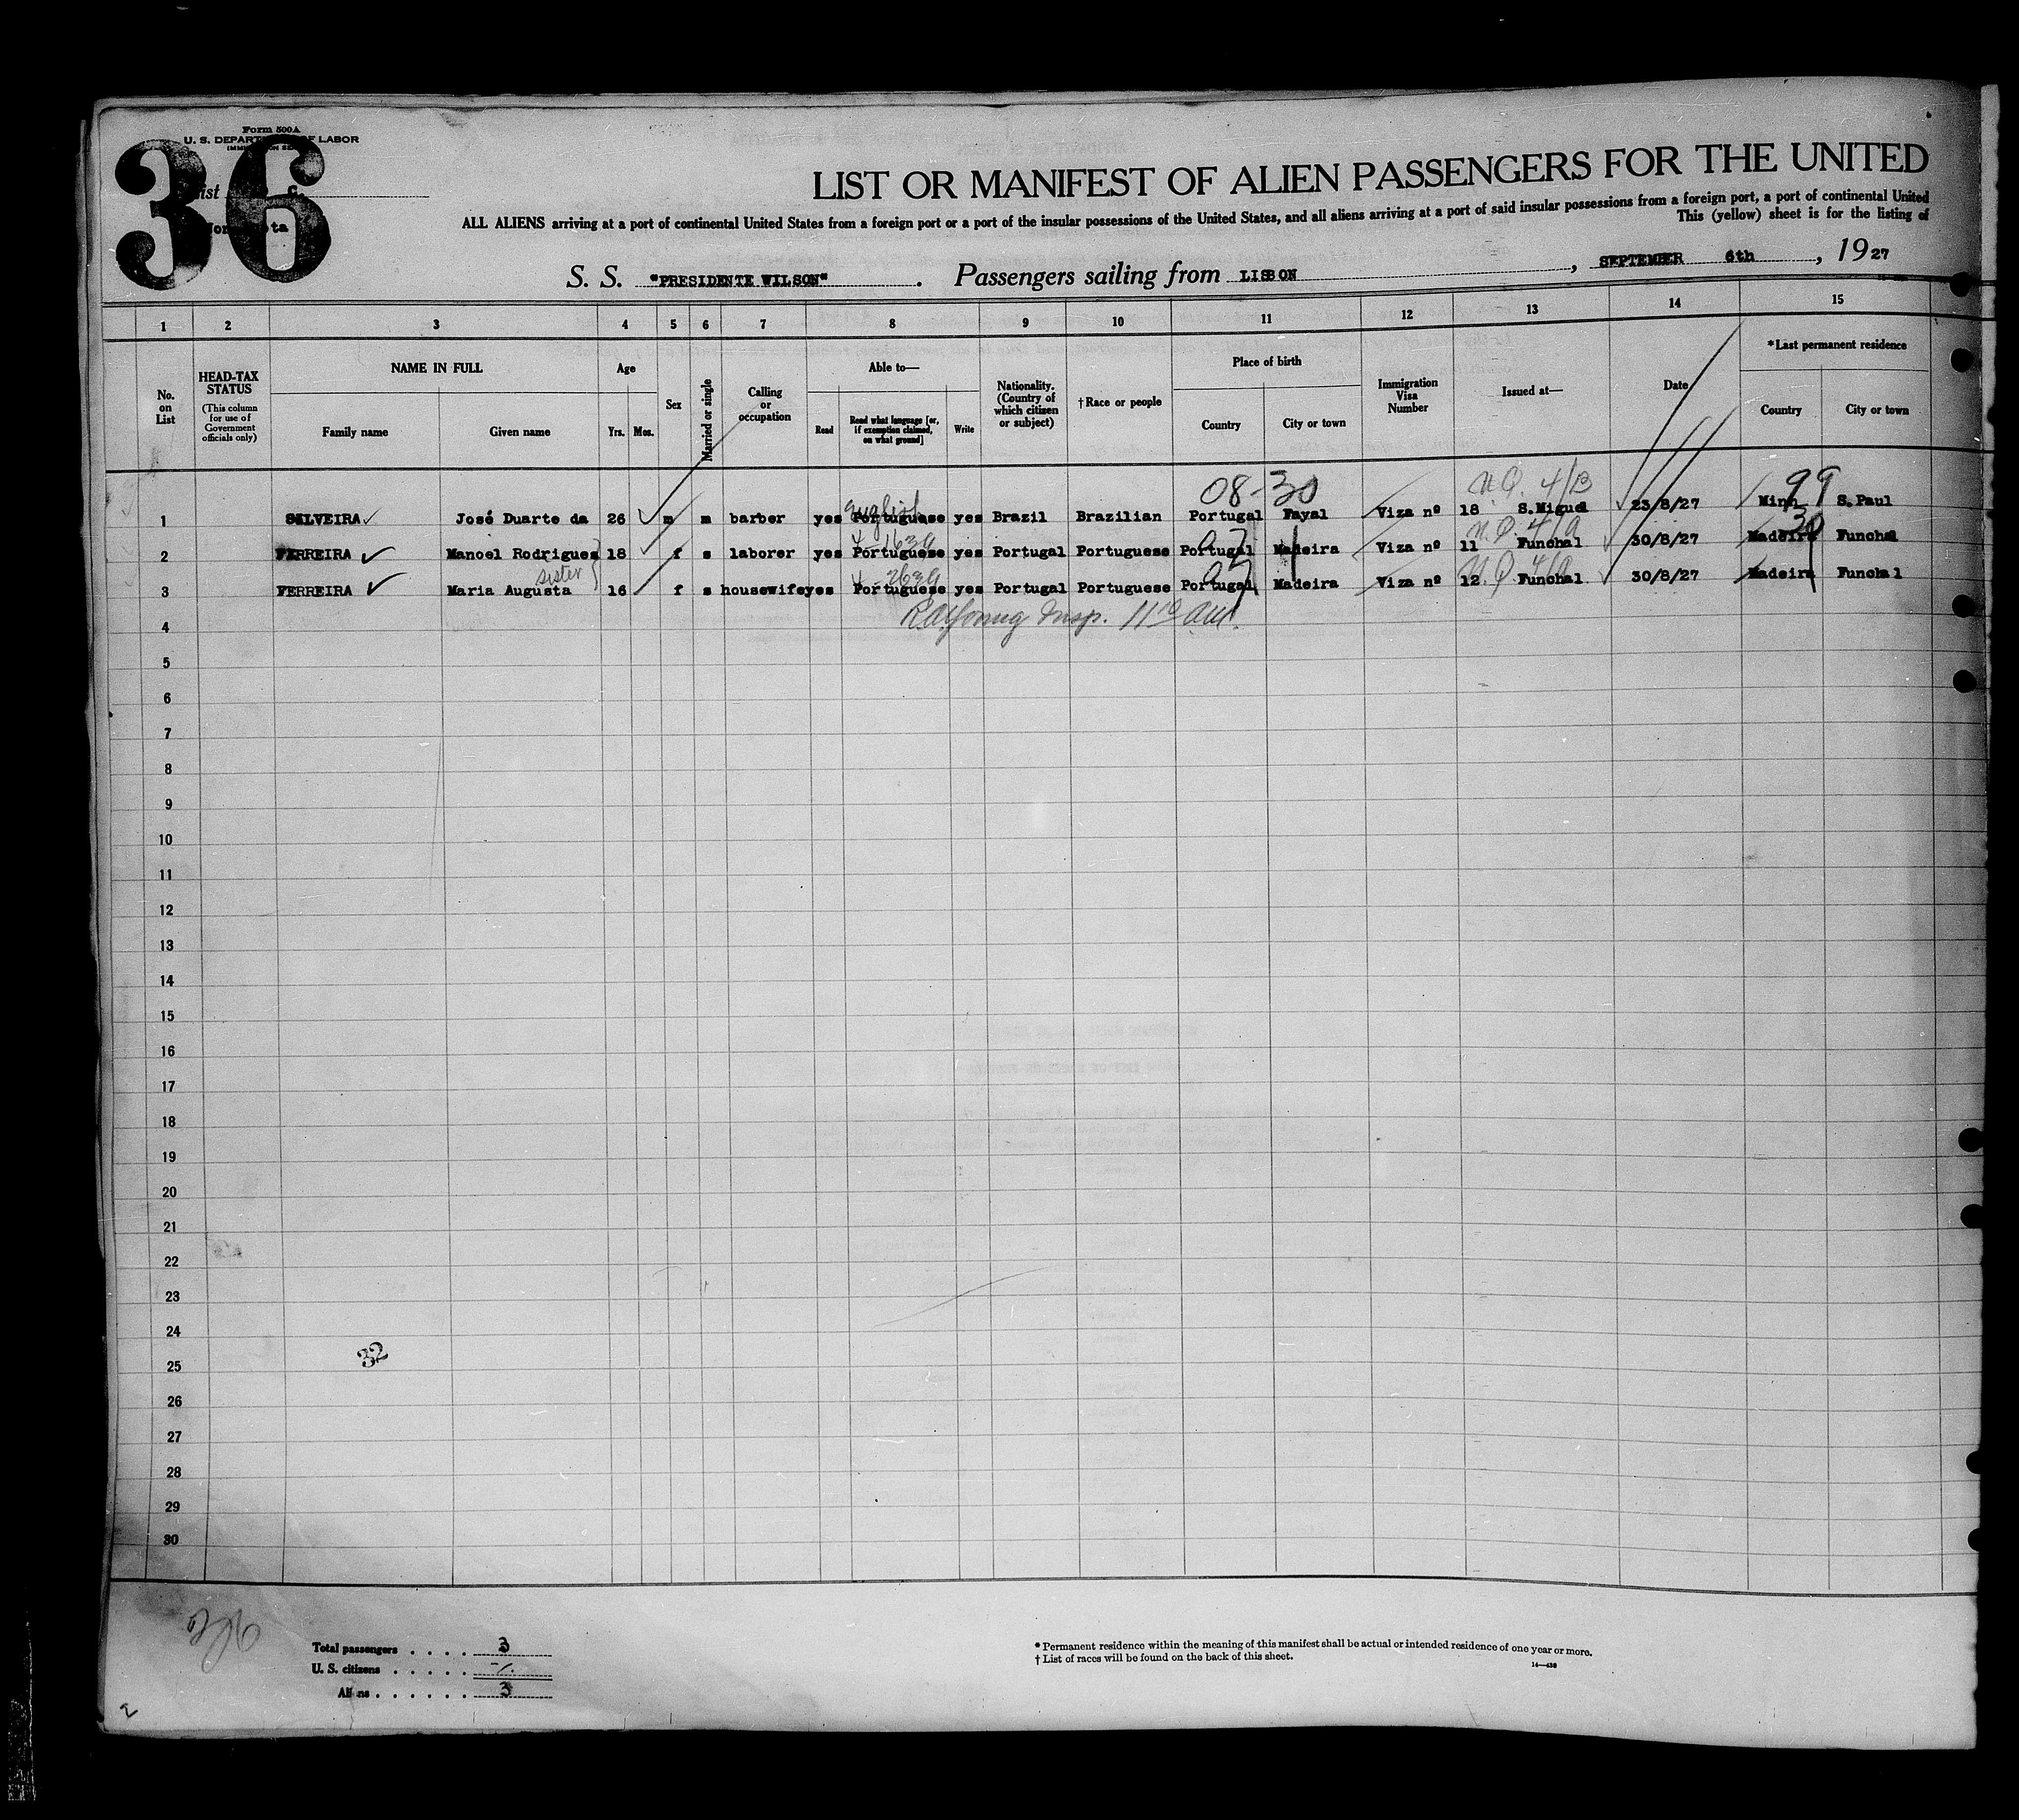 Form 500A
U. S. DEPARTMENT OF LABOR
36
LIST OR MANIFEST OF ALIEN PASSENGERS FOR THE UNITED
ALL ALIENS arriving at a port of continental United States from a foreign port or a port of the insular possessions of the United States, and all aliens arriving at a port of said insular possessions from a foreign port, a port of continental United
This (yellow) sheet is for the listing of
S. S. "PRESIDENTE WILSON". Passengers sailing from LISBON, SEPTEMBER 6th, 1927
1 2 3 4 5 6 7 8 9 10 11 12 13 14 15
No. on List
HEAD-TAX STATUS
(This column for use of Government officials only)
NAME IN FULL
Family name Given name
Age
Yrs. Mos.
Sex
Married or single
Calling or occupation
Able to—
Read
Read what language [or, if exemption claimed, on what ground]
Write
Nationality. (Country of which citizen or subject)
†Race or people
Place of birth
Country City or town
Immigration Visa Number
Issued at—
Date
*Last permanent residence
Country City or town
08-30 N.Q. 4/B 99
English
1 SILVEIRA José Duarte da 26 m m barber yes Portuguese yes Brazil Brazilian Portugal Fayal Viza nº 18 S.Miguel 23/8/27 Minh S.Paul
N.Q. 4/a 30
2 FERREIRA Manoel Rodrigues 18 f s laborer yes Portuguese yes Portugal Portuguese Portugal Madeira Viza nº 11 Funchal 30/8/27 Madeira Funchal
sister N.Q. 4/a
3 FERREIRA Maria Augusta 16 f s housewife yes Portuguese yes Portugal Portuguese Portugal Madeira Viza nº 12 Funchal 30/8/27 Madeira Funchal
4
5
6
7
8
9
10
11
12
13
14
15
16
17
18
19
20
21
22
23
24
32
25
26
27
28
29
30
Total passengers . . . . 3
U. S. citizens . . . . . -/.
Aliens . . . . . . 3
* Permanent residence within the meaning of this manifest shall be actual or intended residence of one year or more.
† List of races will be found on the back of this sheet.
2